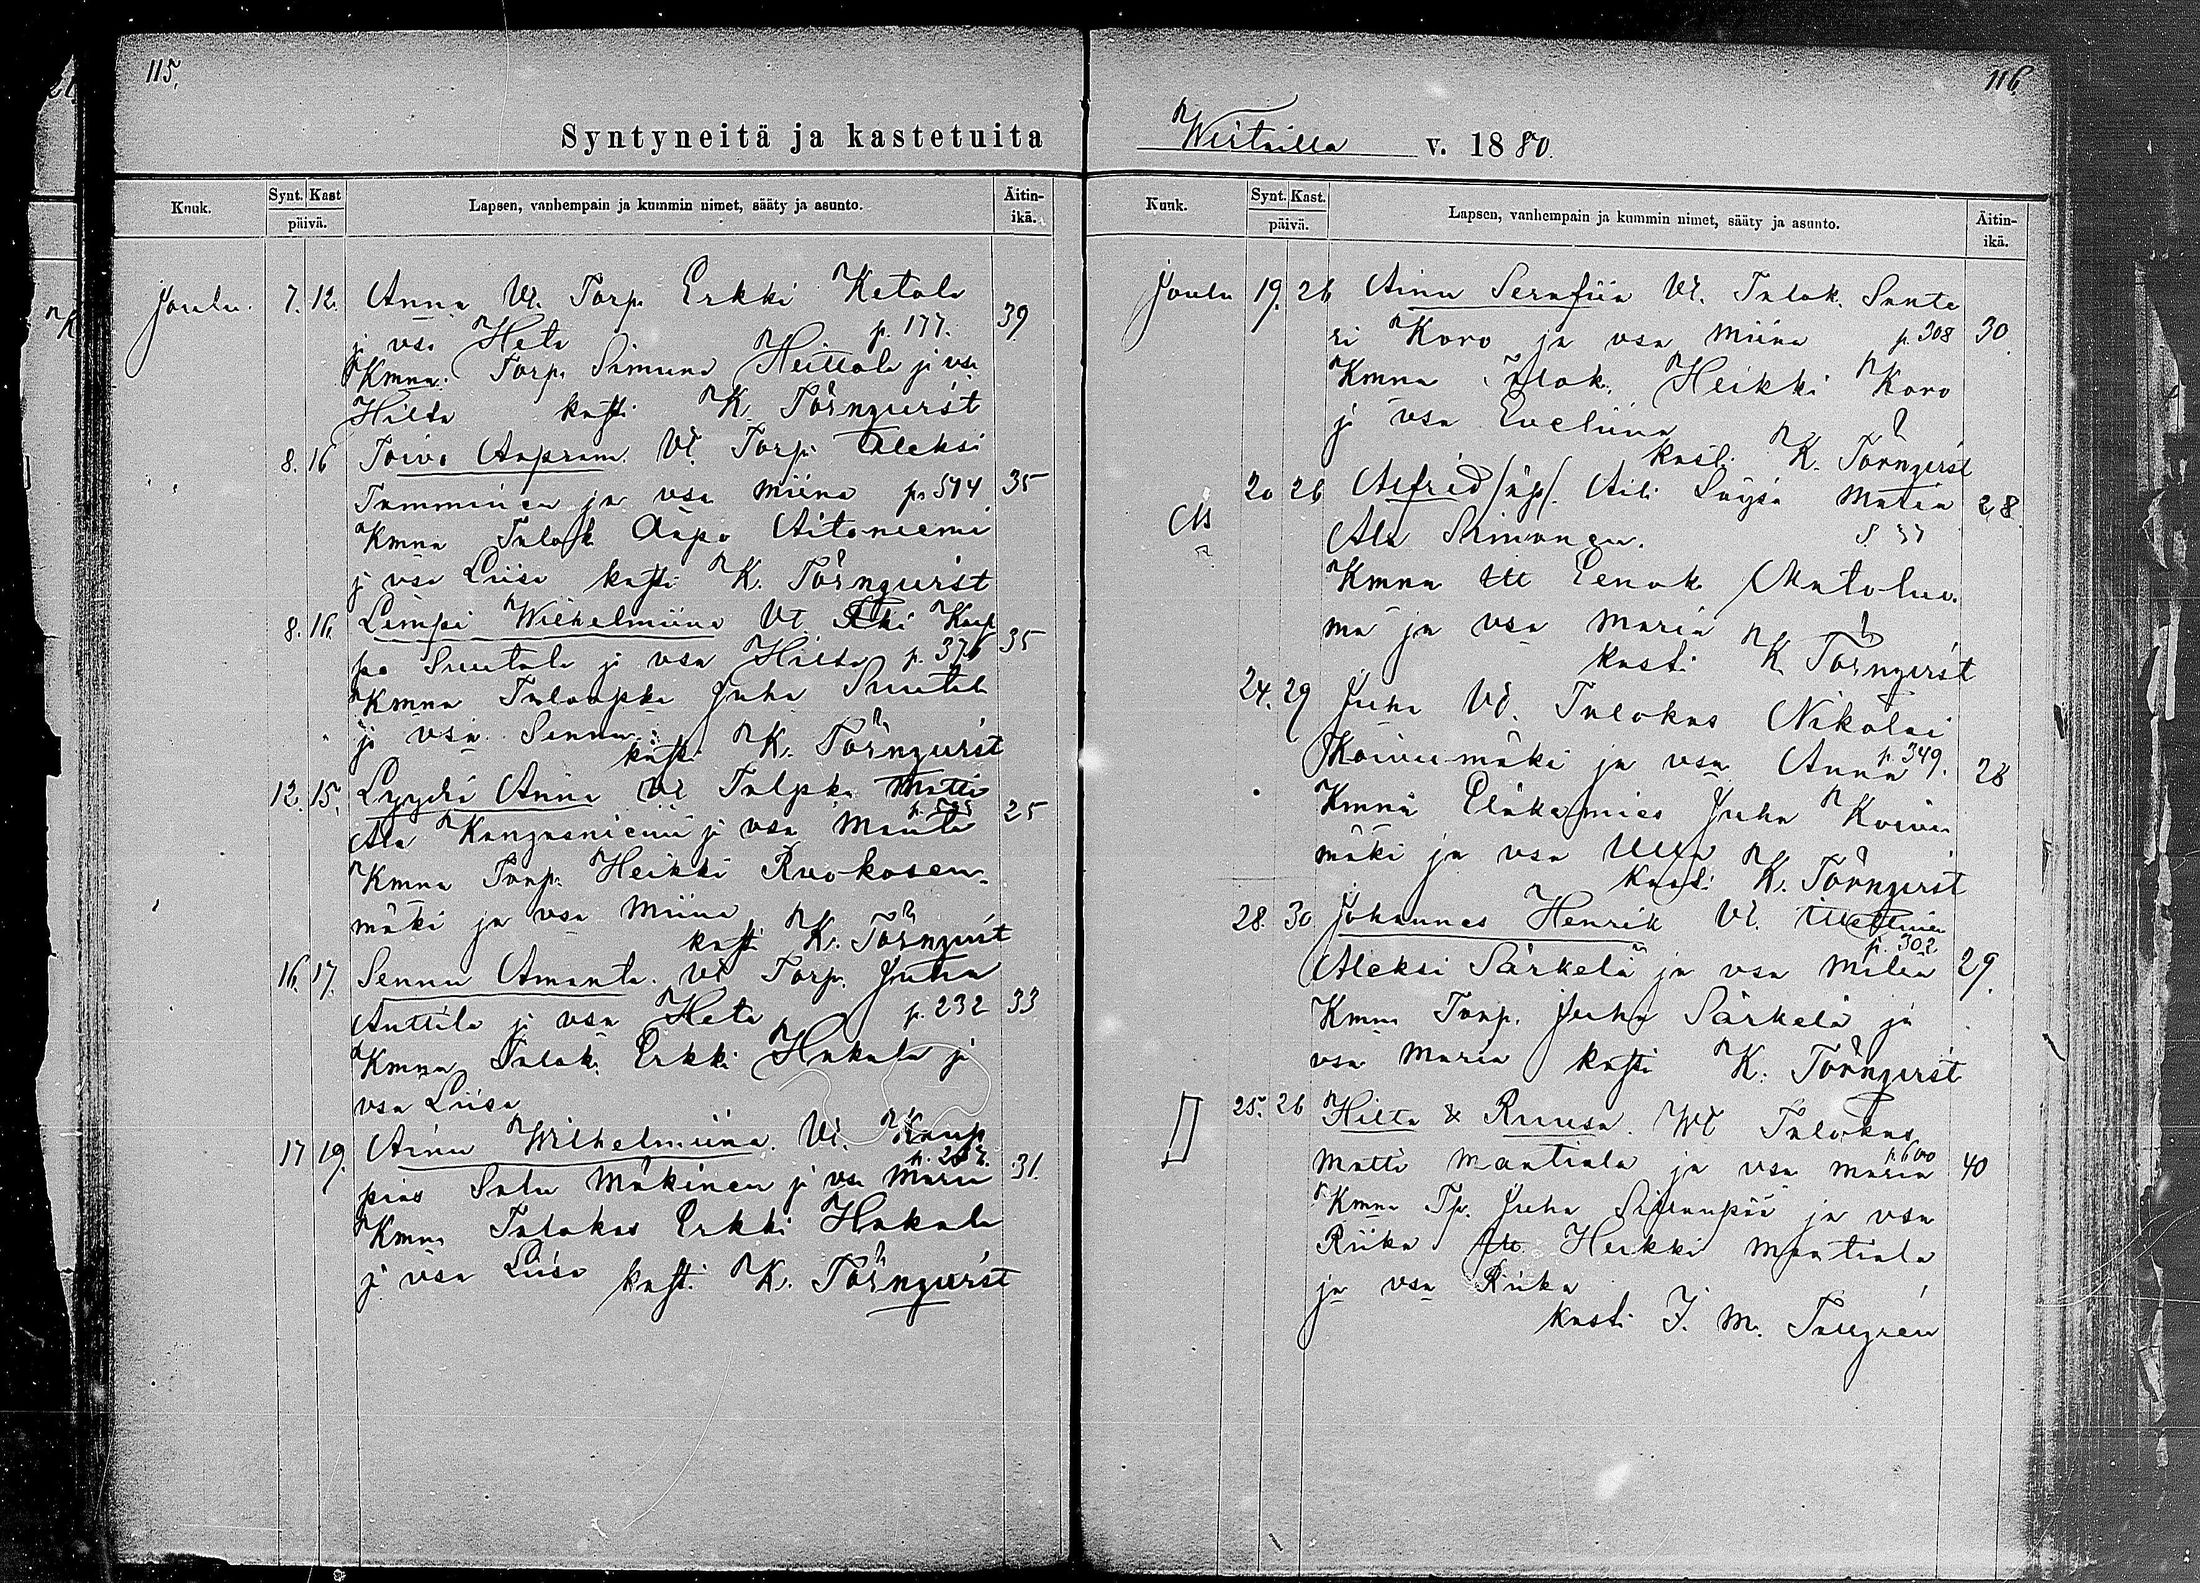 115.
Syntyneitä ja kastetuita
Kuuk. Synt. Kast päivä. Lapsen, vanhempain ja kummin nimet, sääty ja asunto. Äitin-ikä.
Joulu. 7. 12. Anna Vt. Torp. Erkki Ketola
j vsa Heta p. 177. 39
Kmna. Torp. Simuna Heittola j vsa
Hilta kasti K. Törnqvist
8. 16 Toivo Aapram. Vt. Torp. Aleksi
Tamminen ja vsa Miina p. 514 35
Kmna Talok. Aapo Aitoniemi
j vsa Liisa kasti K. Törnqvist
8. 16. Lempi Wilhelmiina Vt Kaup
pa Suutala j vsa Hilta p. 376 35
Kmna Juha Suutal
ja vsa Senna. kasti K. Törnqvist
12. 15. Lyydi Anna Vt Talpka Matti
Ala Kangasniemi j vsa Manta 25
Kmna Torp. Heikki Ruokosen-
mäki ja vsa Miina kasti K. Törnqvist
16. 17. Senna Amanta. Vt Torp. Juha
Anttila j vsa Heta p. 232 33
Kmna Talok. Erkki Hakala j
vsa Liisa
17 19. Aina Wilhelmiina. Vt. Kaup
pias Salu Mäkinen j vsa Maria 31.
Kmna Talokas Erkki Hakala
j vsa Liisa kasti K. Törnqvist
116.
v. 1880.
Kuuk. Synt. Kast. päivä. Lapsen, vanhempain ja kummin nimet, sääty ja asunto. Äitin-ikä.
Joulu 19. 26 Aina Serafiia Vt. Talok. Sante
ri Koro ja vsa Miina p. 308 30
Kmna Talok. Heikki Koro
j vsa Eveliina
kasti K. Törnqvist
20 26 Alfrid /äp/. Äiti Matia 28.
Ala Simonen.
Kmna Eenok Mato
ma ja vsa Maria
kasti K. Törnqvist
24. 29 Juha Vt. Talokas Nikolai
Koivumäki ja vsa Anna p. 349. 28
Kmna Eläkemies Juha Koivu
mäki ja vsa Ulla
kasti K. Törnqvist
28. 30 Johannes Henrik Vt.
p. 302
Aleksi Särkelä ja vsa Milia 29.
Kmna Torp. Juha Särkelä ja
vsa Maria kasti K. Törnqvist
25. 26 Hilta & Ruusa. Vt Talokas
Matti Mantiala ja vsa Maria p. 600 40
Kmna Tp. Juha ja vsa
Riika Heikki Mantiala
ja vsa Riika
kasti J. M. Tallgren